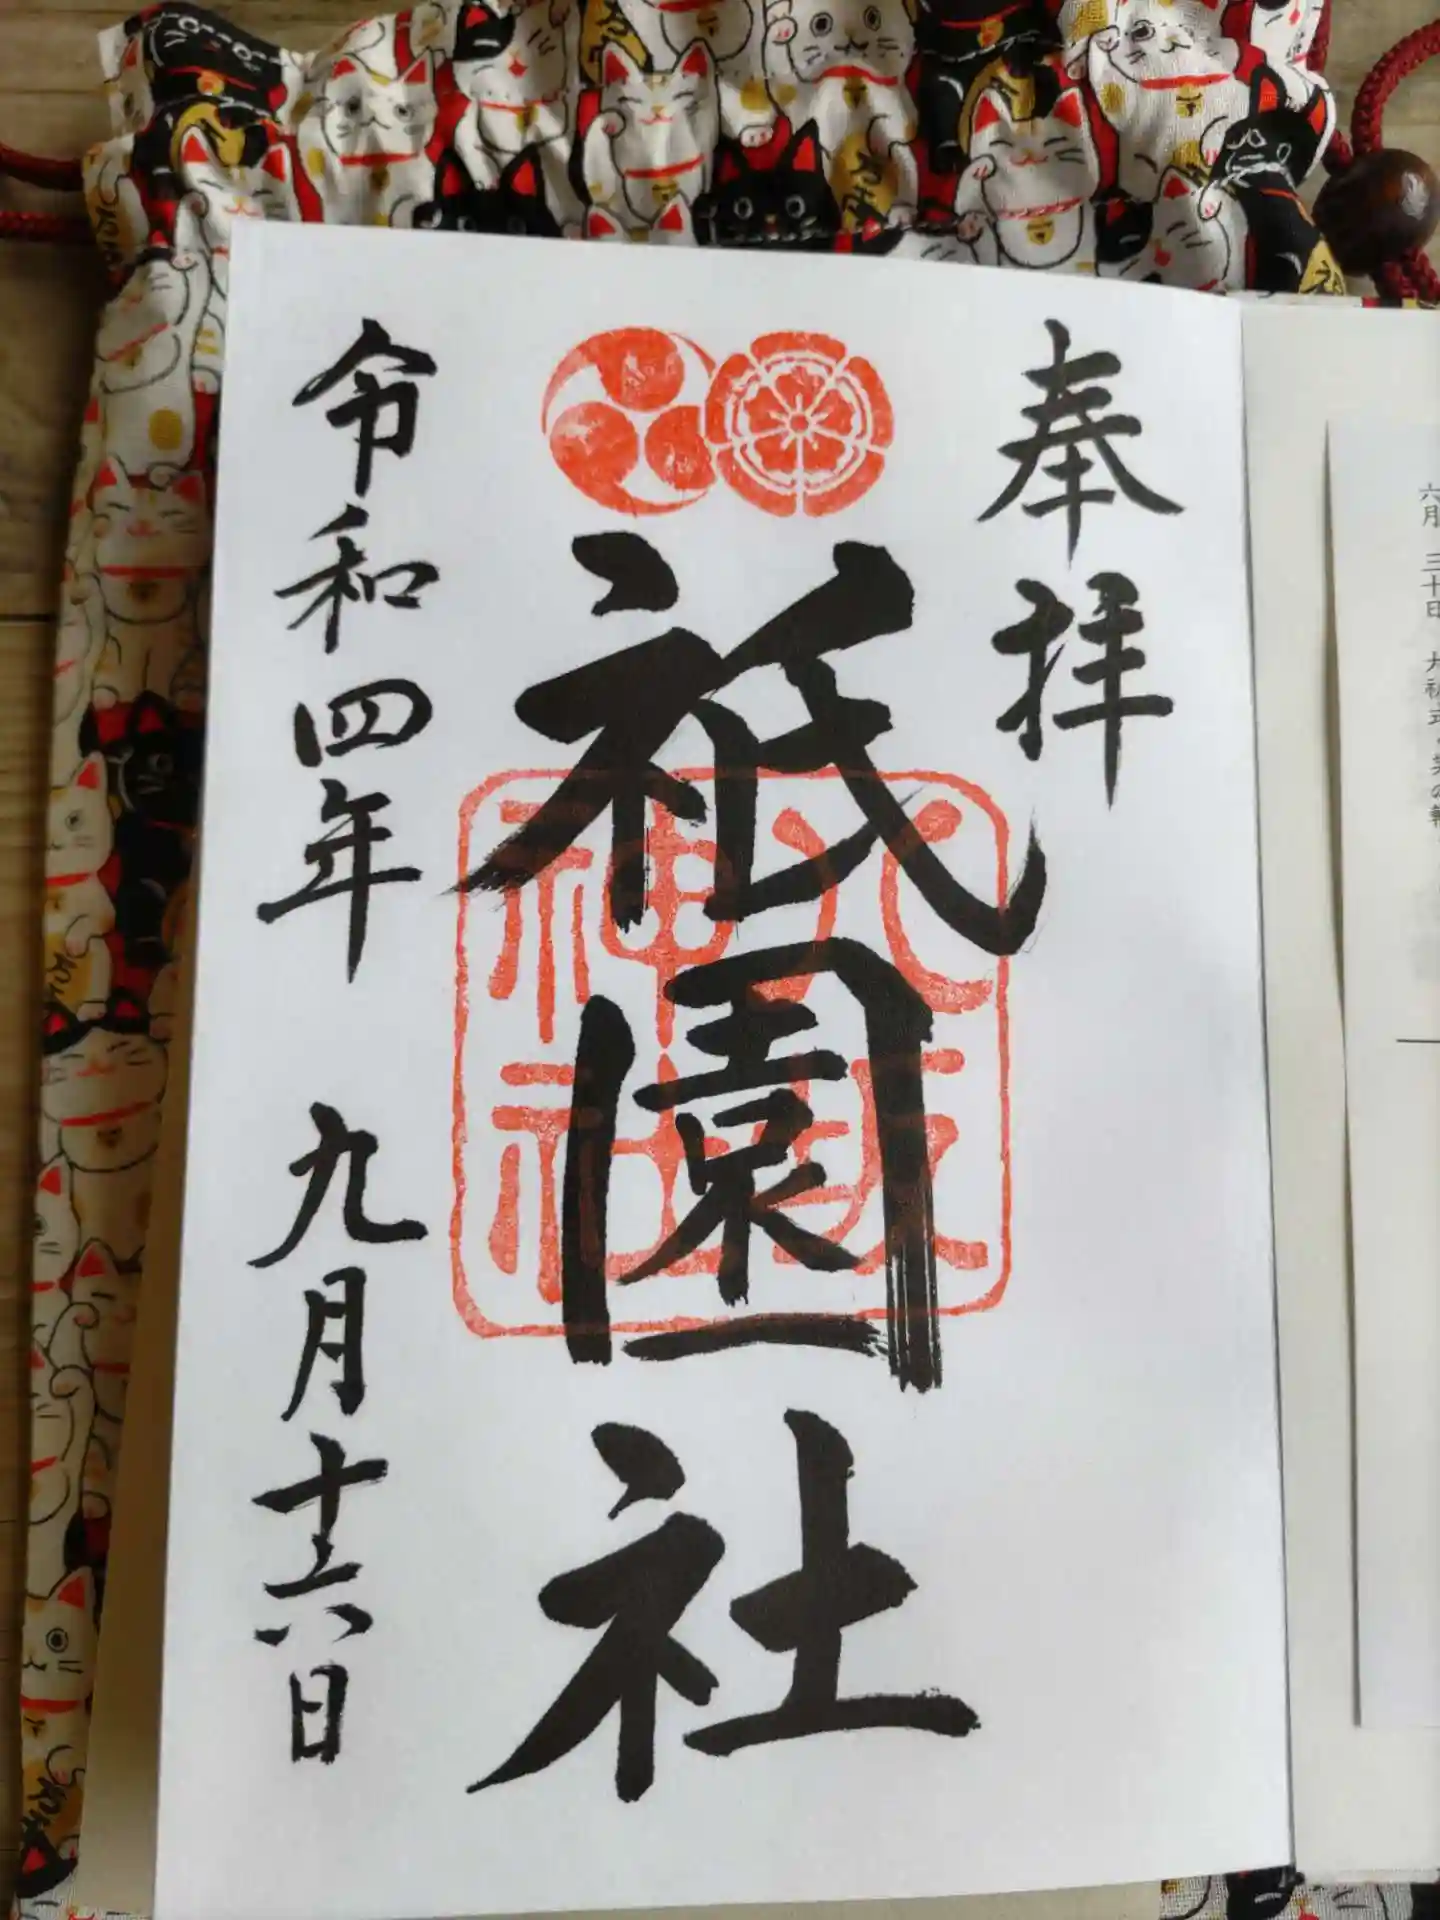 奉拝
祇園社
八坂
神社
令和四年 九月十六日
六月 三十日